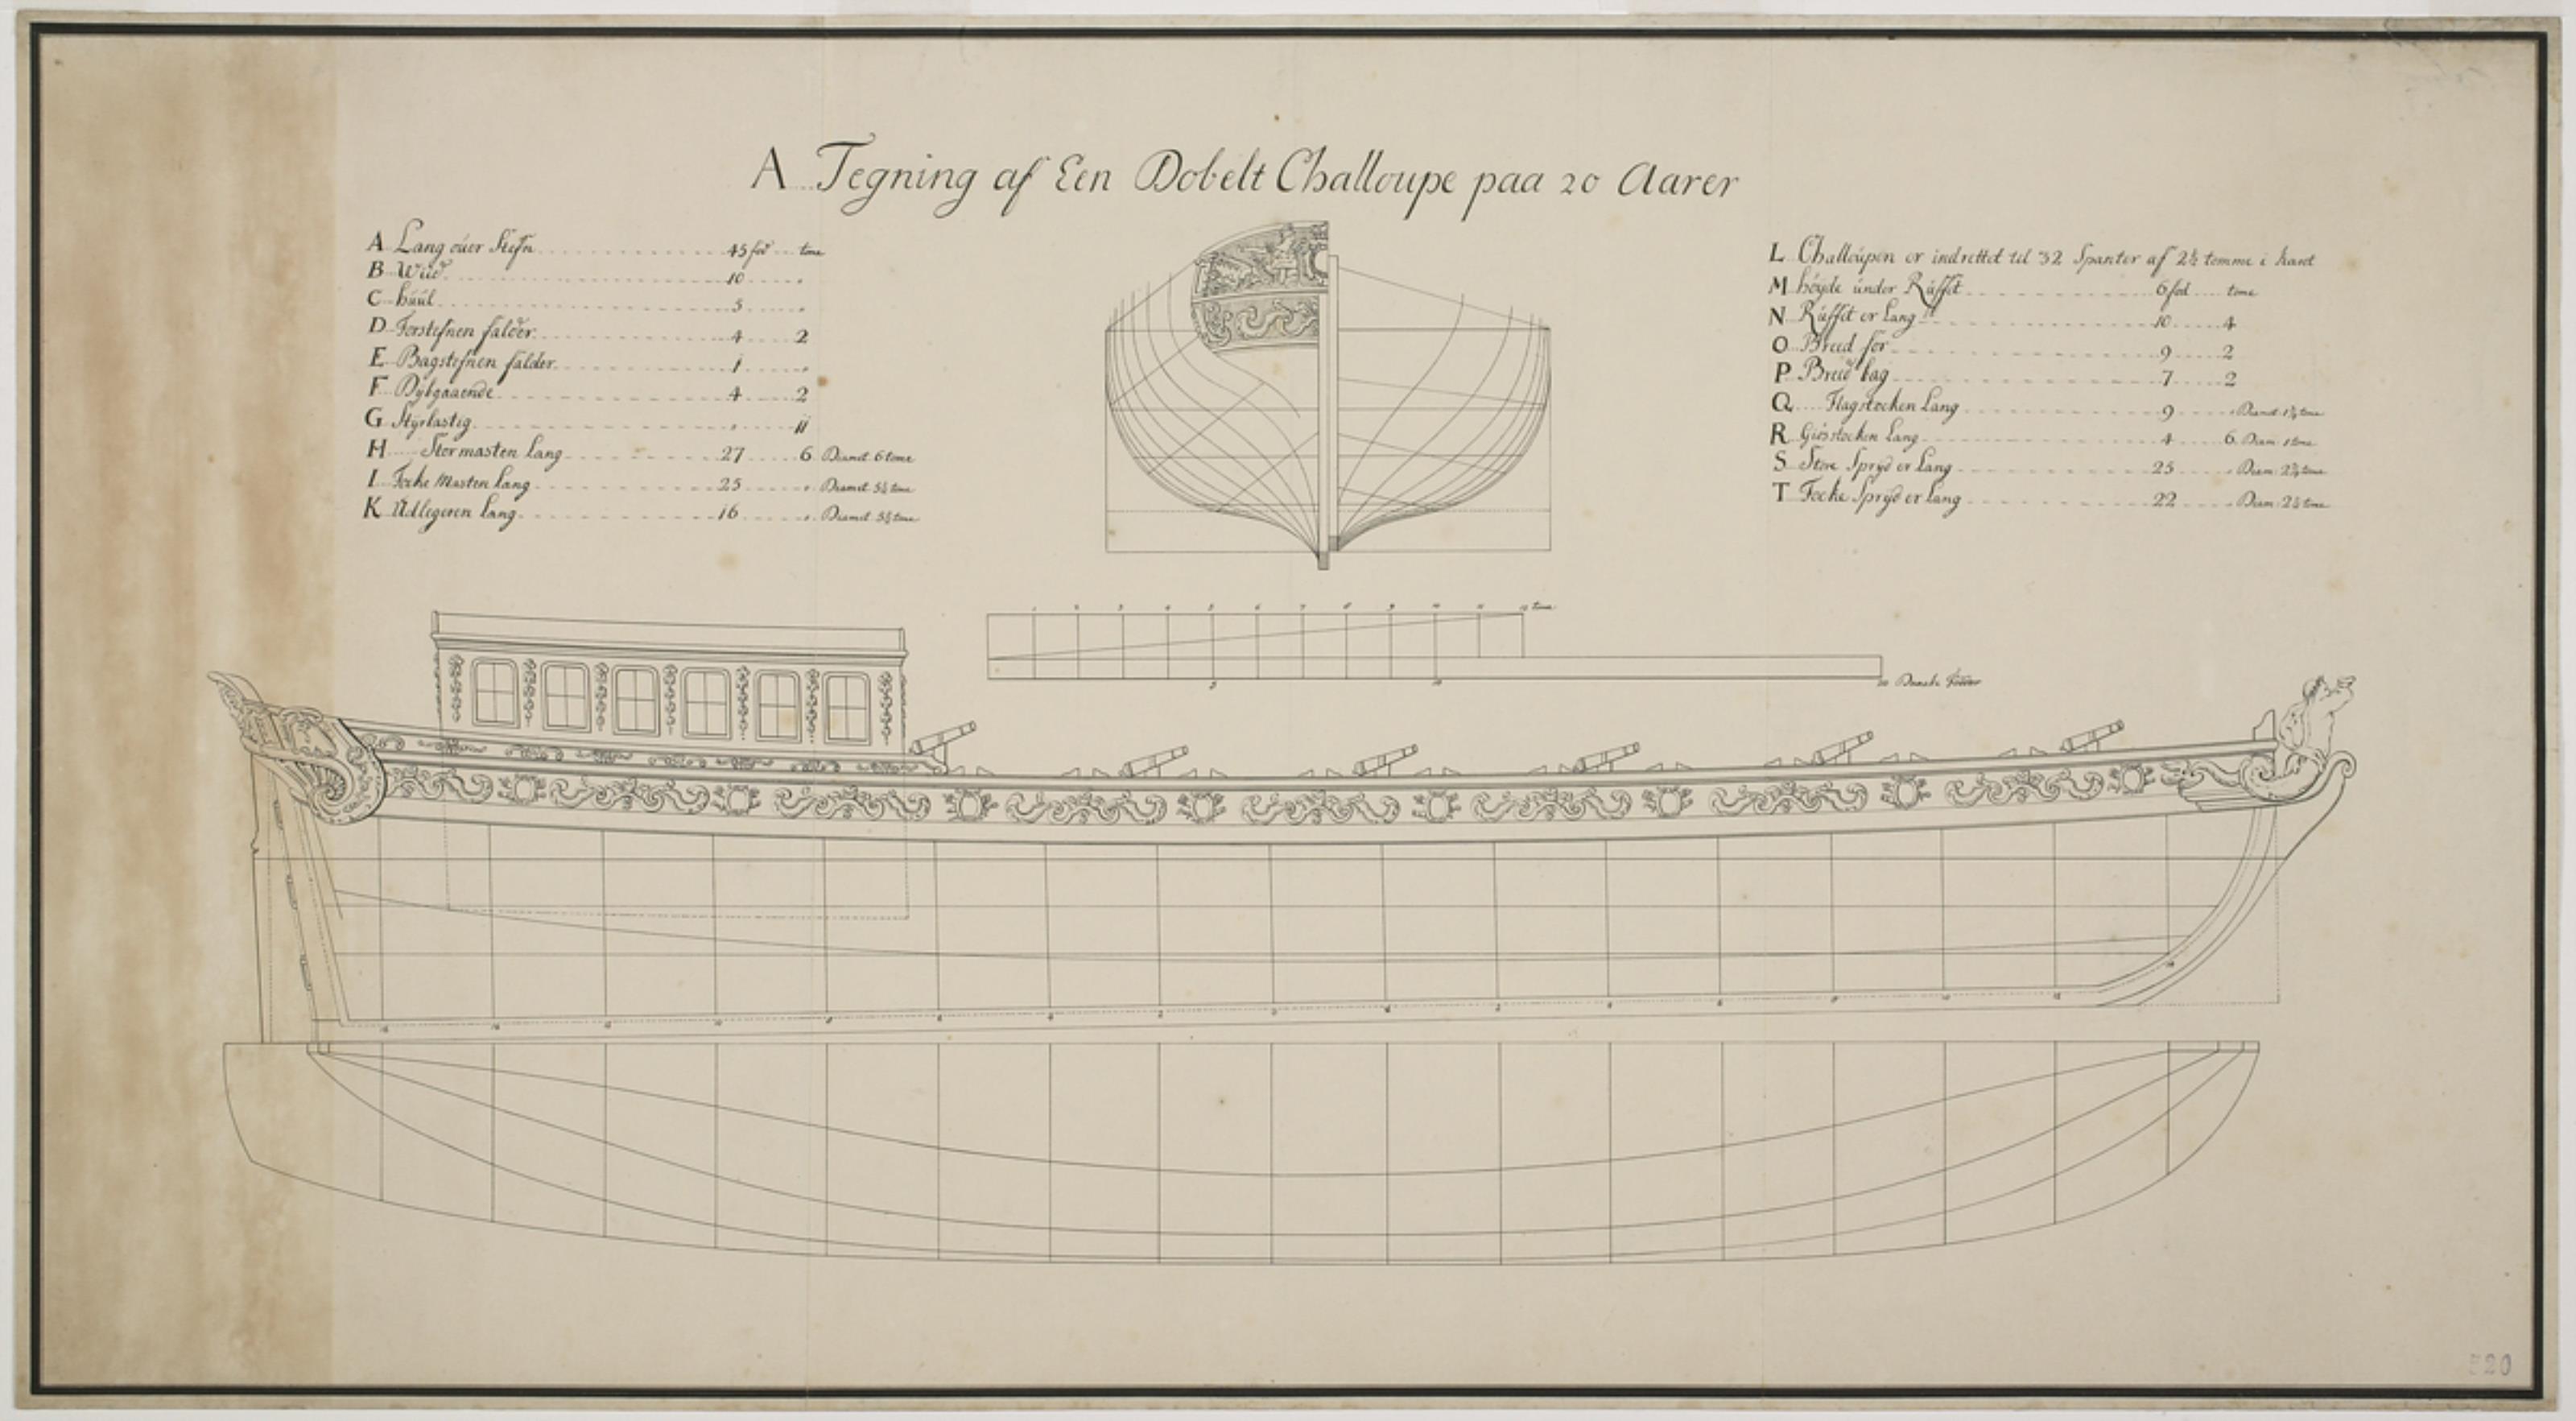 A Tegning af Een Dobelt Challoupe paa 20 Aarer
A Lang ouer Stefn 45 fod tome
B Wiid 10 "
C huul 5 "
D Forstefnen falder 4 2
E Bagstefnen falder 1 "
F Dybgaaende 4 2
G Styrlastig " 11
H Stor masten lang 27 6 Diamet 6 tome
I Focke Masten lang 25 " Diamet 5½ tome
K Udligeren lang 16 " Diamet tome
L Challoupen er indrettet til 32 Spanter af 2½ tomme i kant
M höyde under Ruffet 6 fod tome
N Ruffet er Lang 10 4
O Breed for 9 2
P Breed bag 7 2
Q Flagstocken Lang 9 " Diamet tome
R Giösstocken Lang 4 6 Diam 1 tome
S Store Spryd er Lang 25 " Diam tome
T Focke Spryd er Lang 22 " Diam 2½ tome
1 2 3 4 5 6 7 8 9 10 11 12 tome
5 10 20 Danske Födder
16 14 12 10 8 6 4 2 2 4 6 8 10 12
320